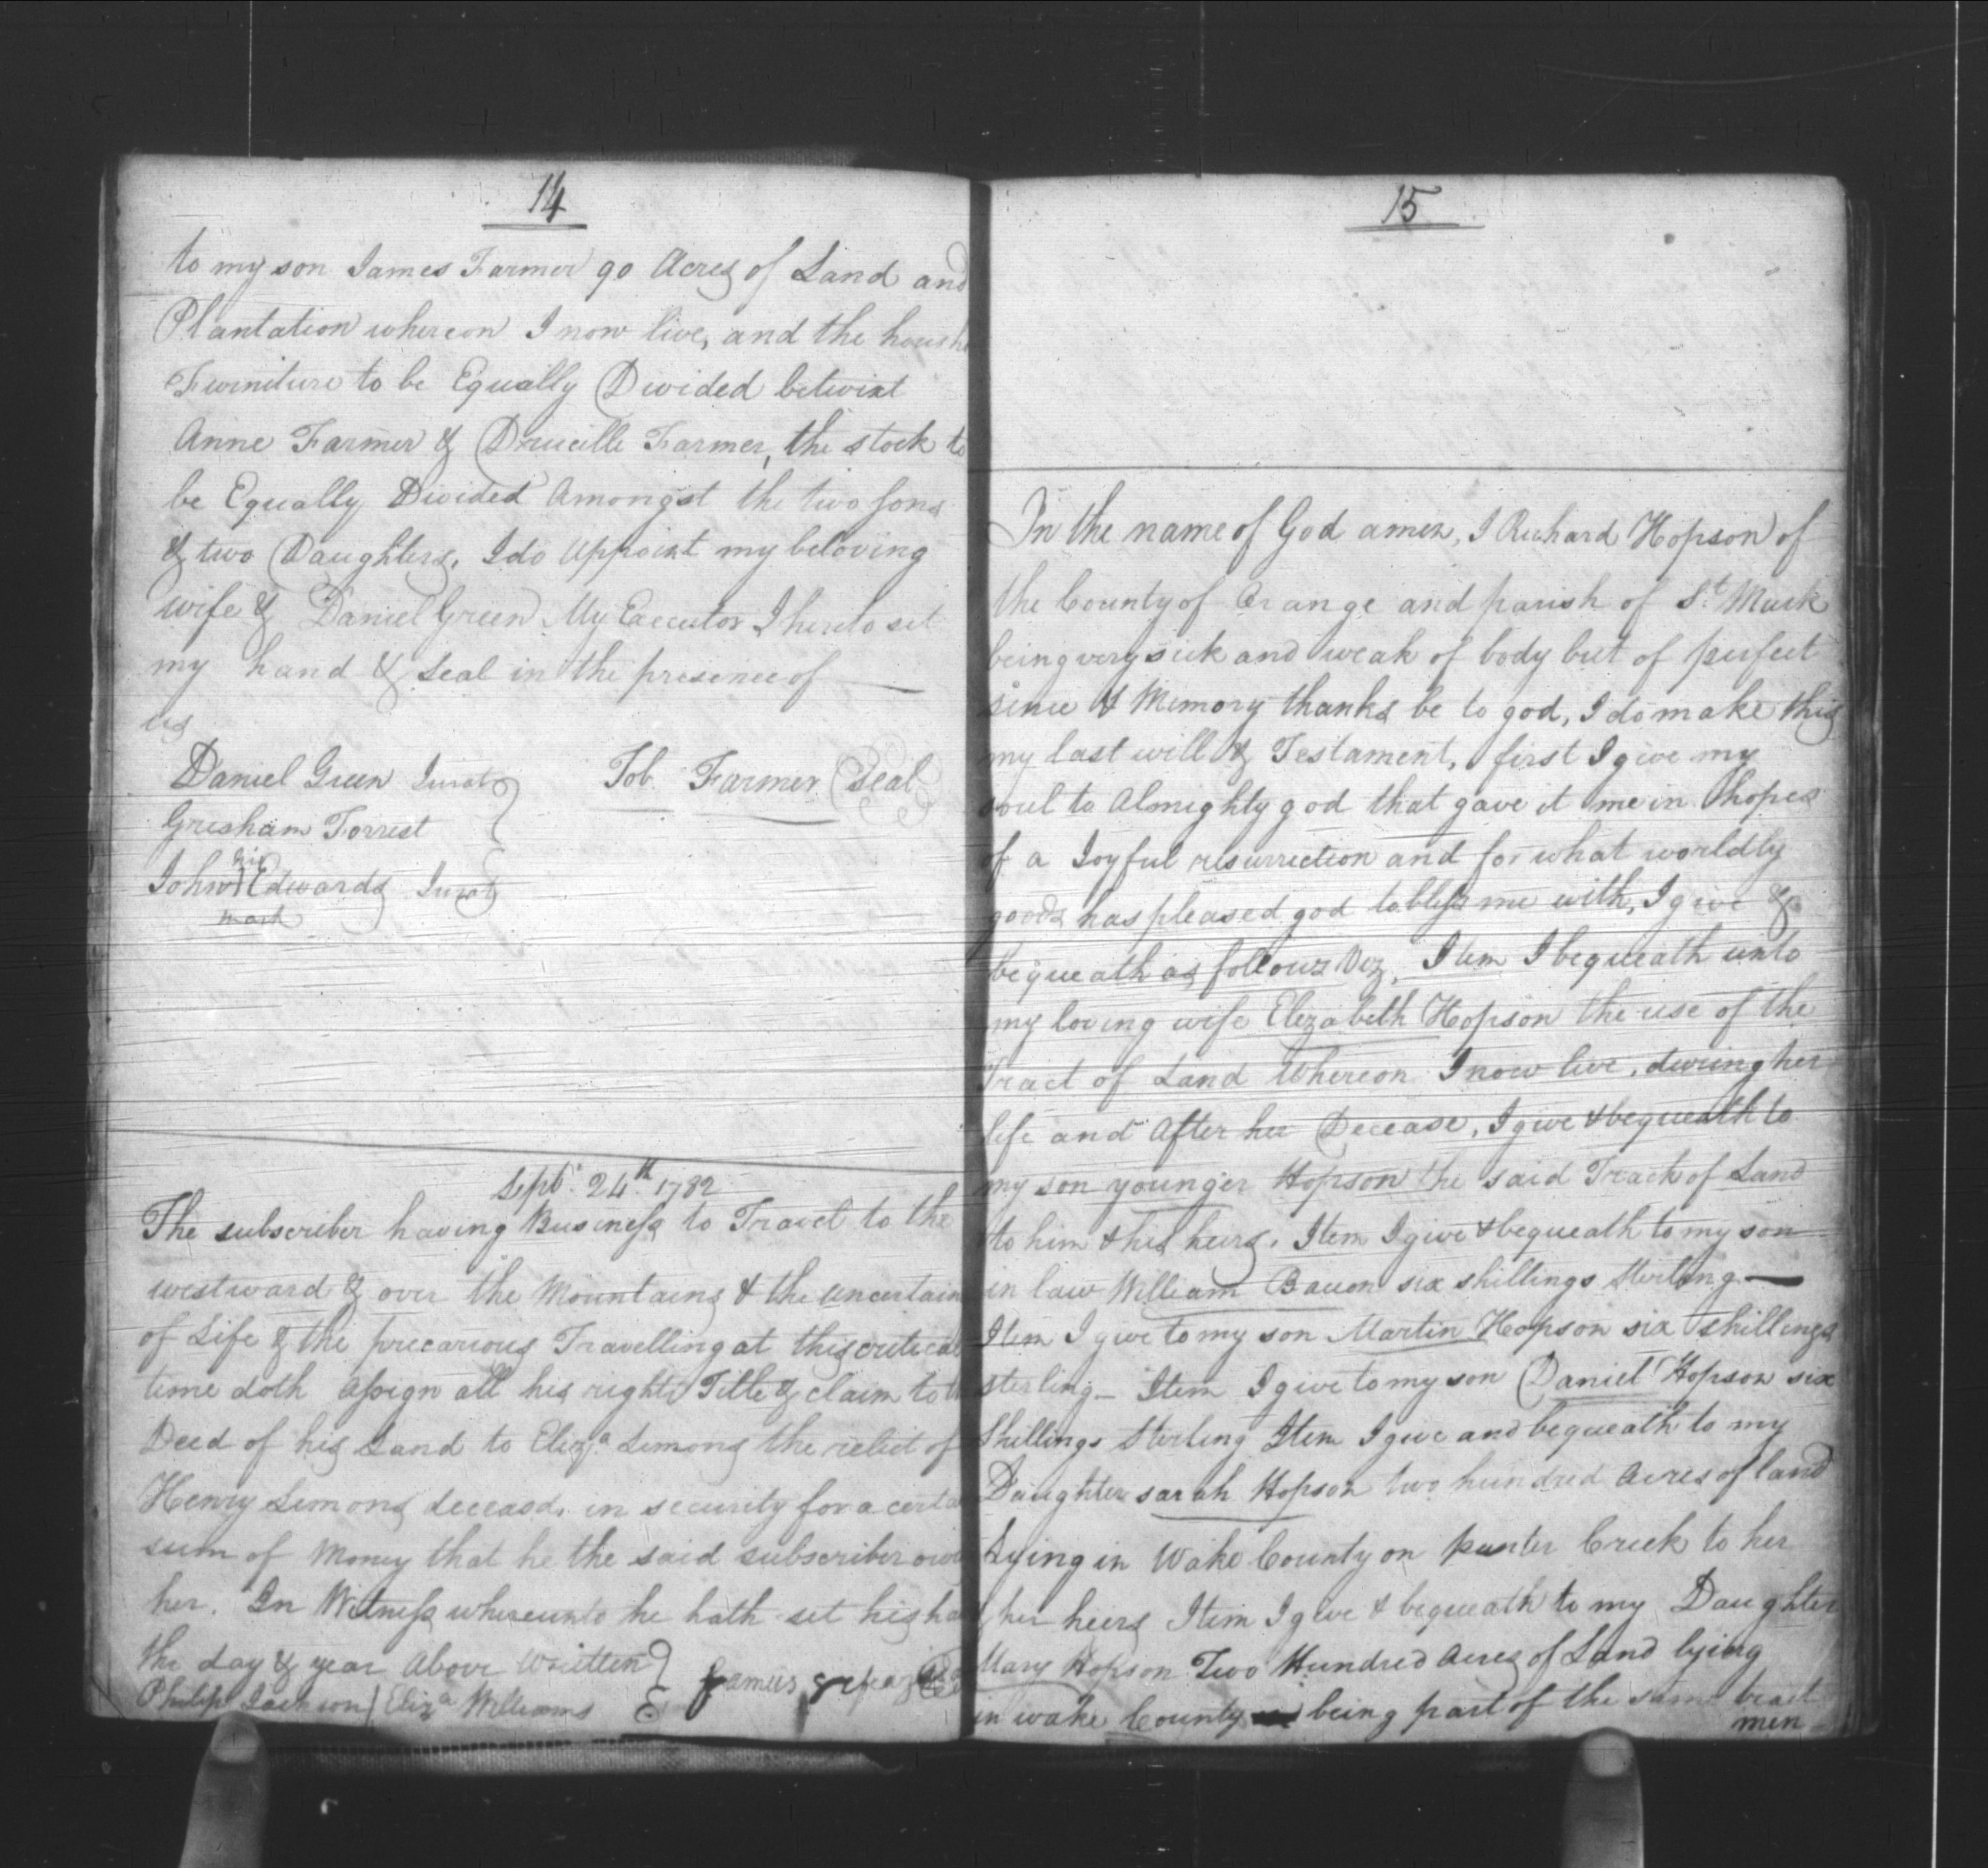 14
to my son James Farmer 90 Acres of Land and
Plantation whereon I now live, and the
Furniture to be Equally Divided betwixt
Anne Farmer & Drucille Farmer, the stock to
be Equally Divided Amongst the two sons
& two Daughters. I do Appoint my beloving
wife & Daniel Green My Executor I hereto set
my hand & Seal in the presence of
us
Daniel Green Jurat
Gresham Forrest
his
John Edwards Jurat
mark
Job Farmer Seal
Sept. 24th 1782
The subscriber having Business to Travel to the
westward & over the Mountains & the uncertain
of Life & the precarious Travelling at this critical
time doth Assign all his right Title & claim to
Deed of his Land to Eliza Simons the relict of
Henry Simons deceasd. in security for a
sum of Money that he the said subscriber
her. In Witness whereunto he hath set his
the day & year Above Written
Philip Jackson Eliza Williams
James
15
In the name of God amen, I Richard Hopson of
the County of Orange and parish of St. Mark
being very sick and weak of body but of perfect
sence & Memory thanks be to god, I do make this
my last will & Testament, first I give my
soul to Almighty god that gave it me in hopes
of a Joyful resurrection and for what worldly
goods has pleased god to bless me with, I give &
bequeath as follows Viz, Item I bequeath unto
my loving wife Elizabeth Hopson the use of the
Tract of Land Whereon I now live, during her
life and After her Decease, I give & bequeath to
my son younger Hopson the said Track of Land
to him & his heirs. Item I give & bequeath to my son
in law William Bacon six shillings Sterling
Item I give to my son Martin Hopson six shillings
sterling - Item I give to my son Daniel Hopson six
Shillings Sterling Item I give and bequeath to my
Daughter sarah Hopson two hundred Acres of land
Lying in Wake County on Creek to her
& her heirs Item I give & bequeath to my Daughter
Mary Hopson Two Hundred Acres of Land lying
in wake County being part of the same tract
men